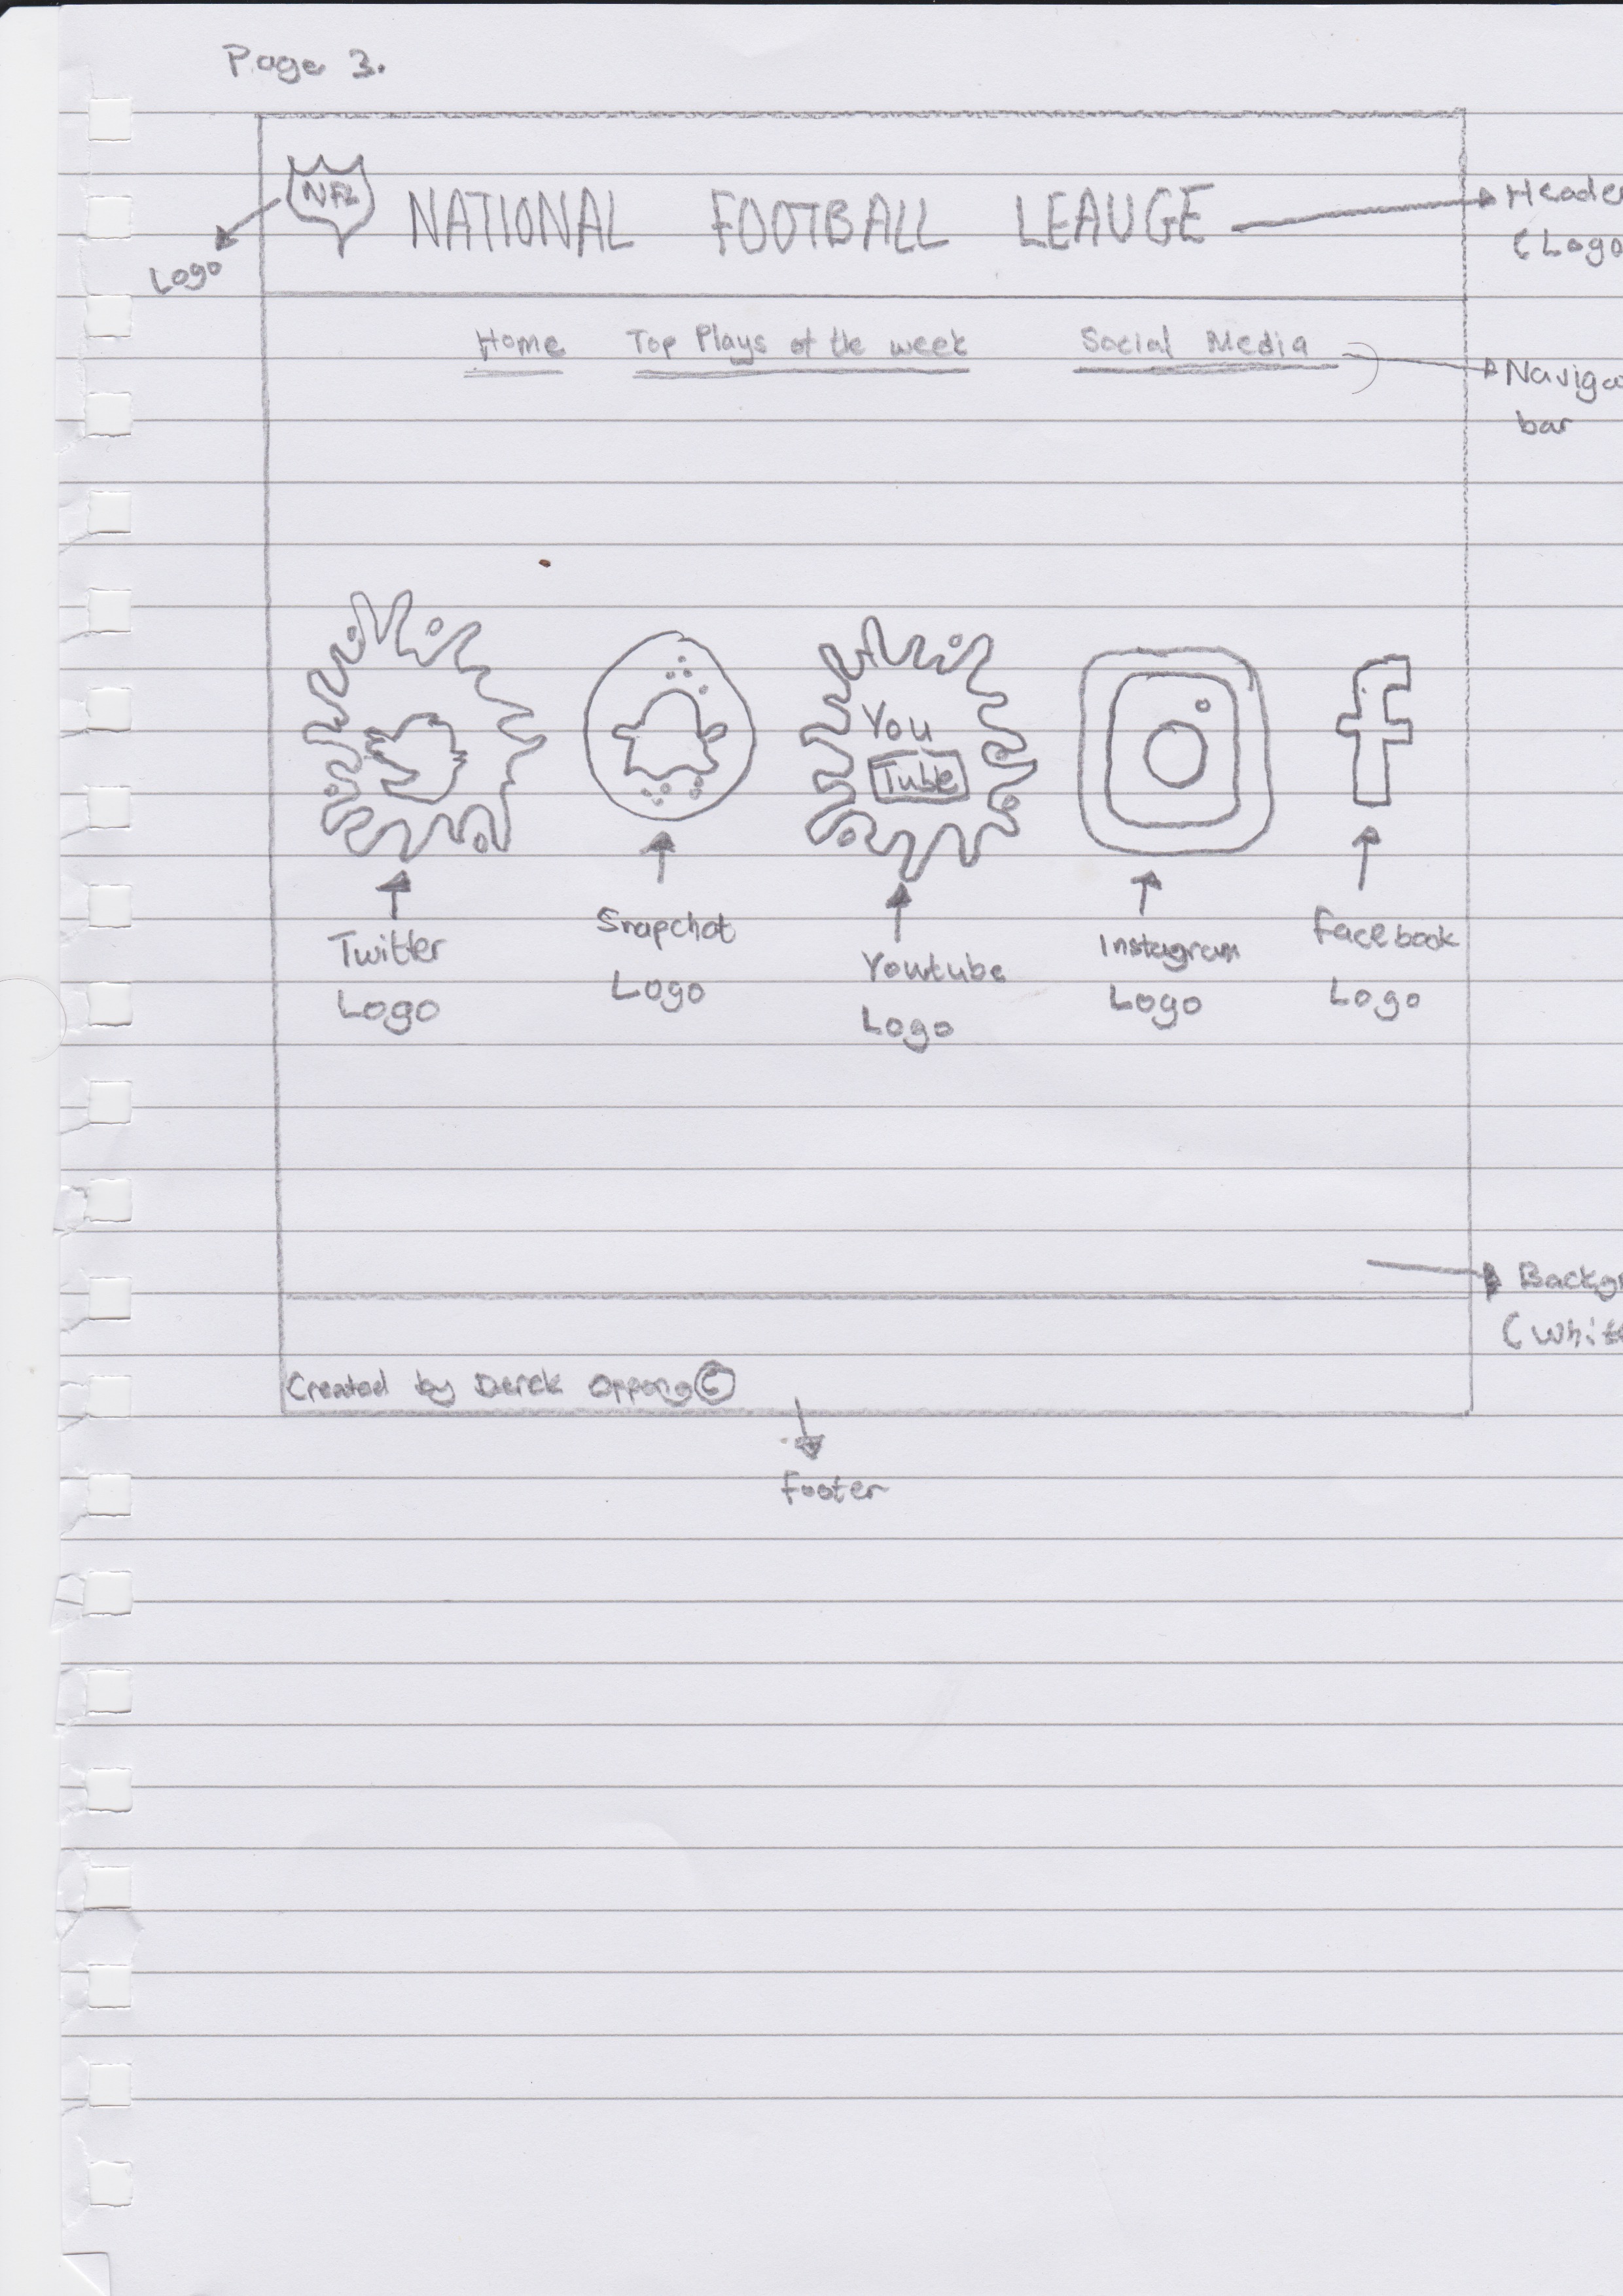 Page 3.
NFL NATIONAL FOOTBALL LEAUGE
Header
(Logo
Logo
Home Top Plays of the week Social Media
Naviga
bar
You
Tube
Twitter
Logo
Snapchat
Logo
Youtube
Logo
Instagram
Logo
facebook
Logo
Backgr
(White
Created by Derek Oppong ©
footer